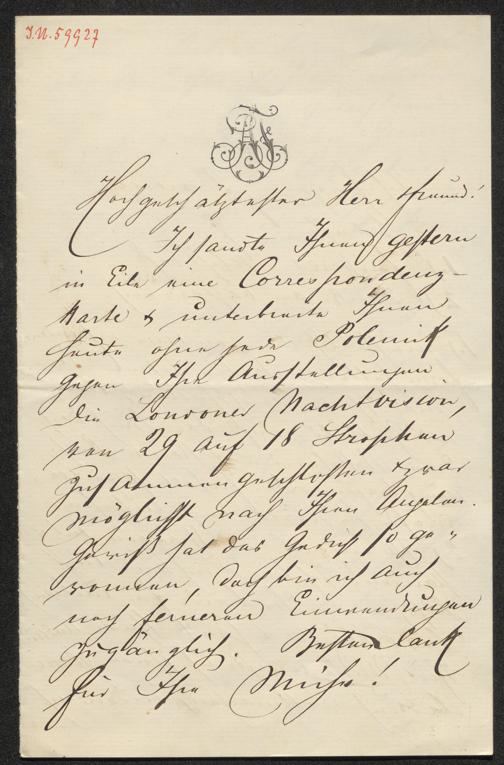 I.N. 59927
Hochgeschätztester Herr Freund!
Ich sandte Ihnen gestern
in Eile eine Correspondenz-
karte & unterbreite Ihnen
heute ohne jede Polemik
gegen Ihre Ausstellungen
die Londoner Nachtvision,
von 29 auf 18 Strophen
zusammengeschossen & zwar
möglichst nach Ihren Angaben.
Gewiß hat das Gedicht so ge-
wonnen, doch bin ich auch
noch ferneren Einwendungen
zugänglich. Besten Dank
für Ihre Mühe!